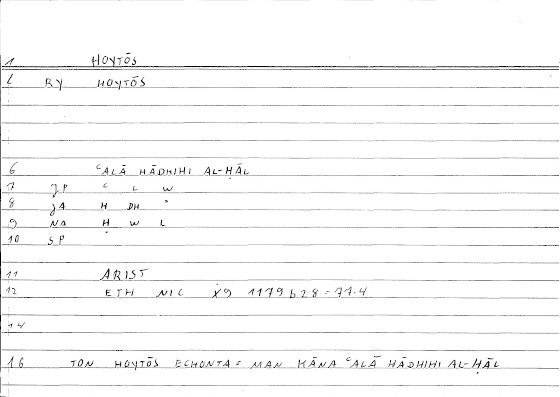 1 HOYTŌS
L RY HOYTŌS
6 ᶜALĀ HĀDHIHI AL-ḤĀL
7 JP ᶜ L W
8 JA H DH ʾ
9 NA Ḥ W L
10 SP
11 ARIST
12 ETH NIC X9 1179b28=77.4
14
16 TON HOYTŌS ECHONTA = MAN KĀNA ᶜALĀ HĀDHIHI AL-ḤĀL